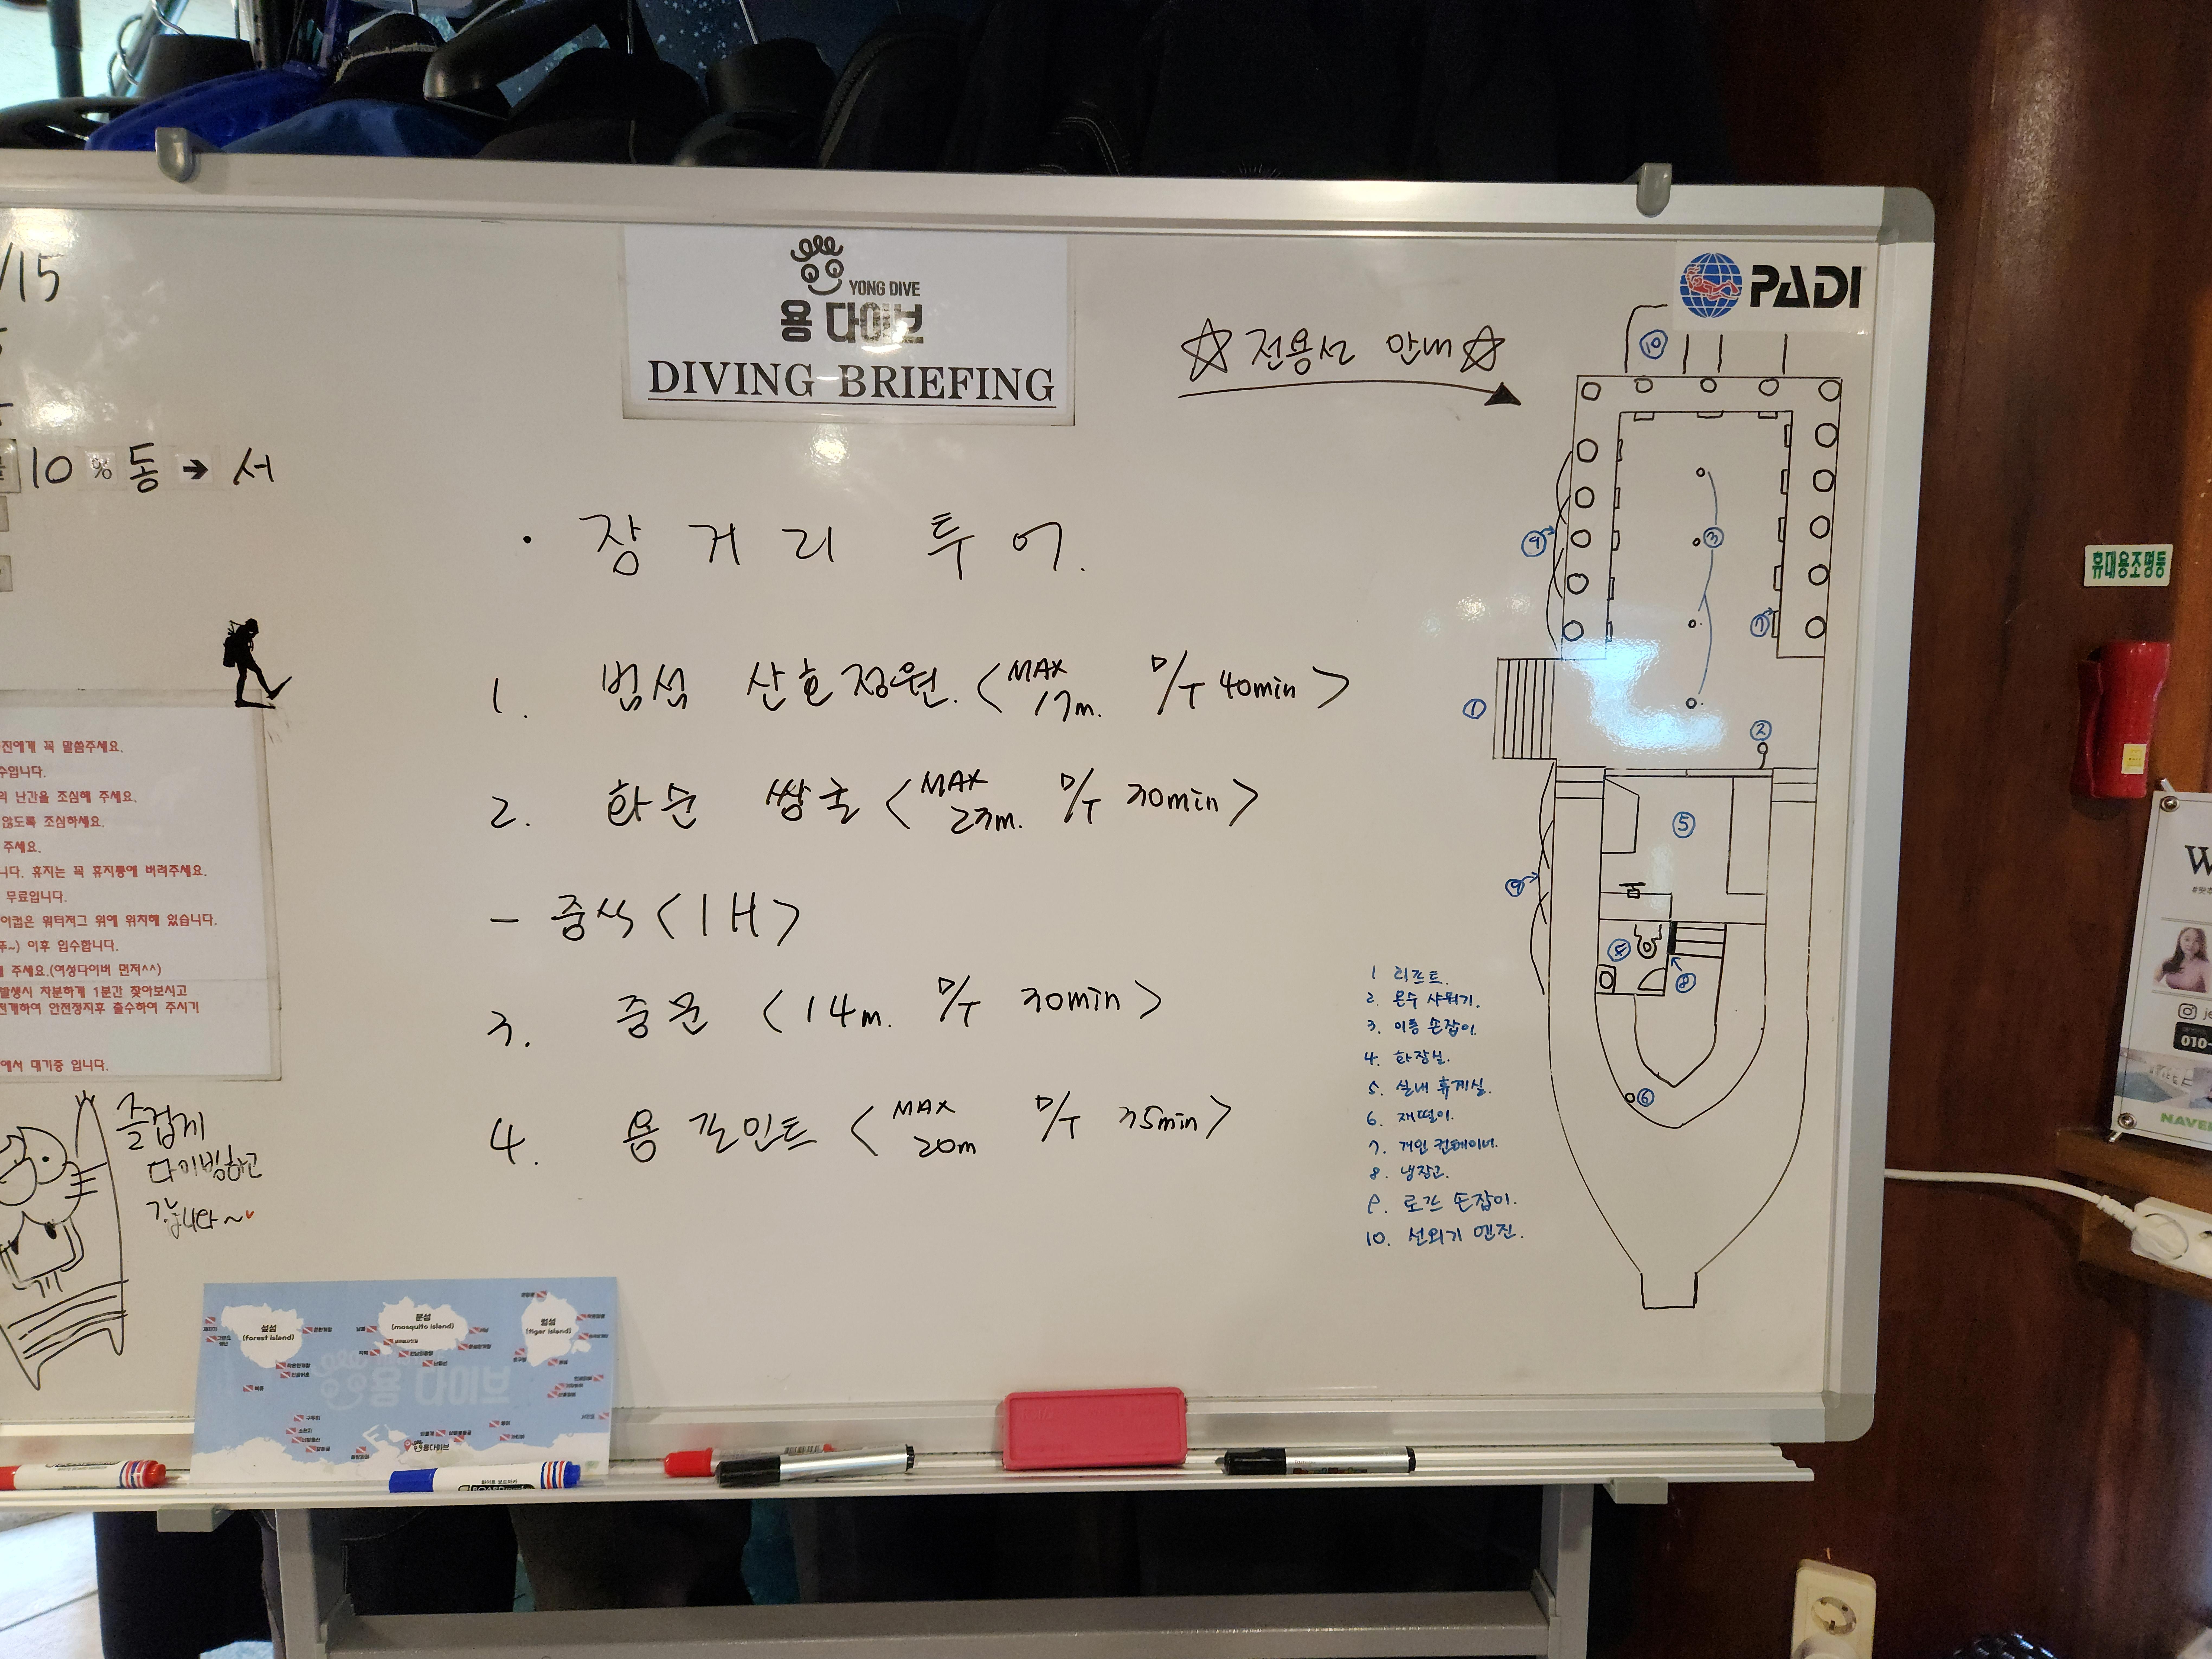 /15
10 % 동 → 서
YONG DIVE
용 다이브
DIVING BRIEFING
☆ 전용선 안내 ☆
PADI
· 장거리 투어.
1. 범섬 산호정원. < MAX 17m. D/T 40min >
2. 화순 쌍굴 < MAX 23m. D/T 30min >
- 중식 < 1H >
3. 중문 < 14m. D/T 30min >
4. 용 포인트 < MAX 20m D/T 35min >
진에게 꼭 말씀주세요.
수입니다.
난간을 조심해 주세요.
않도록 조심하세요.
주세요.
니다. 휴지는 꼭 휴지통에 버려주세요.
무료입니다.
이컵은 워터저그 위에 위치해 있습니다.
이후 입수합니다.
주세요.(여성다이버 먼저^^)
발생시 차분하게 1분간 찾아보시고
전개하여 안전정지후 출수하여 주시기
에서 대기중 입니다.
즐겁게
다이빙하고
갑니다~
10
9
3
7
1
2
5
9
4
8
6
1 리프트.
2. 온수 샤워기.
3. 이동 손잡이.
4. 화장실.
5. 실내 휴게실.
6. 재떨이.
7. 개인 컨테이너.
8. 냉장고.
9. 로프 손잡이.
10. 선외기 엔진.
섶섬
(forest island)
문섬
(mosquito island)
범섬
(tiger island)
용 다이브
휴대용조명등
W
010-
NAVE